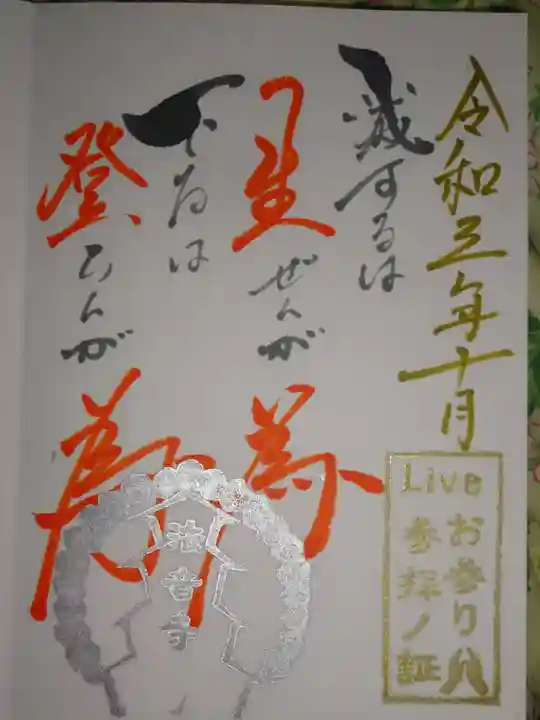 令和三年十月
Liveお参り
参拝ノ証
滅するは
生ぜんが
為
下るは
登らんが
為
法音寺